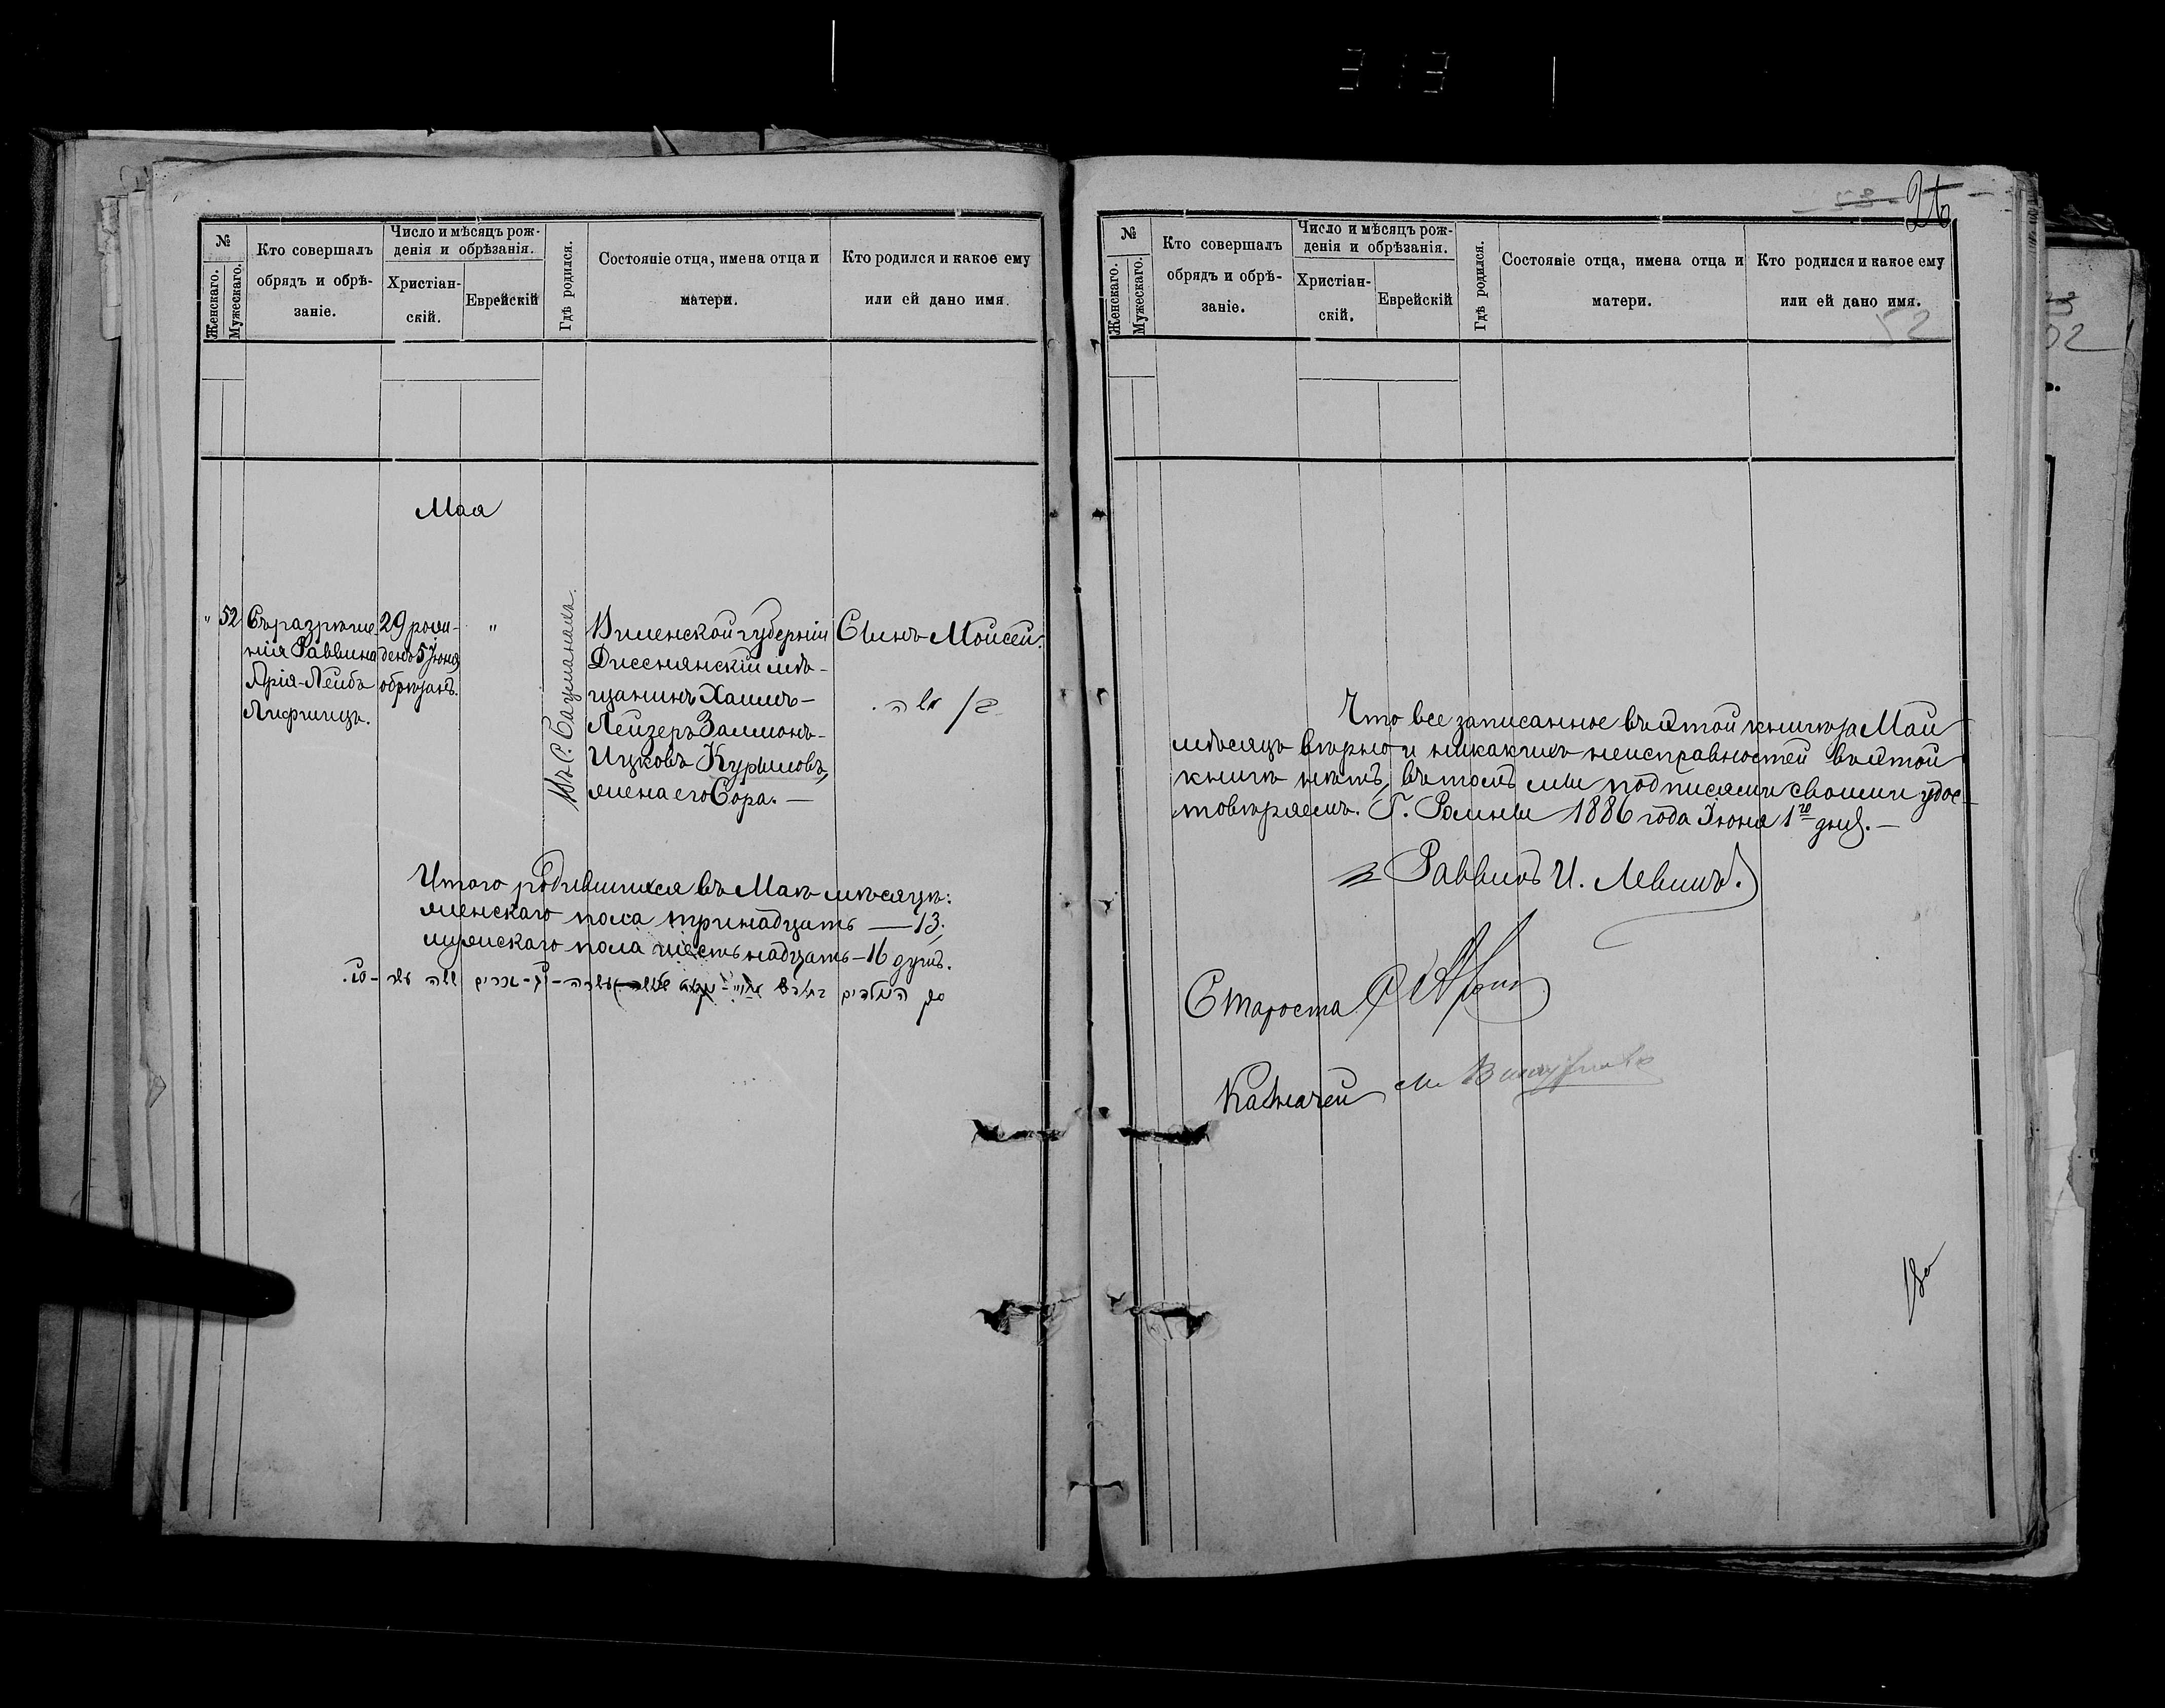 313
26
№
Женскаго.
Мужескаго.
Кто совершалъ
обрядъ и обрѣ-
заніе.
Число и мѣсяцъ рож-
денія и обрѣзанія.
Христіан-
скій.
Еврейскій
Гдѣ родился.
Состояніе отца, имена отца и
матери.
Кто родился и какое ему
или ей дано имя.
Мая
" 52
Съ разрѣше-
нія Раввина
Арія-Лейбъ
Лифшицъ.
29 рож-
денъ 5 Іюня
обрѣзанъ.
"
Въ С. Бацманахъ.
Виленской губерніи
Дисснянскій мѣ-
щанинъ Хаимъ-
Лейзеръ Залмонъ-
Ицковъ Курыловъ,
жена его Сора. —
Сынъ Моисей.
בן משה.
Итого родившихся въ Маѣ мѣсяцѣ:
женскаго пола тринадцать — 13,
мужскаго пола шестьнадцать — 16 душъ.
№
Женскаго.
Мужескаго.
Кто совершалъ
обрядъ и обрѣ-
заніе.
Число и мѣсяцъ рож-
денія и обрѣзанія.
Христіан-
скій.
Еврейскій
Гдѣ родился.
Состояніе отца, имена отца и
матери.
Кто родился и какое ему
или ей дано имя.
52
Что все записанное въ этой книгѣ за Май
мѣсяцъ вѣрно и никакихъ неисправностей въ этой
книгѣ нѣтъ, въ томъ мы подписями своими удос-
товѣряемъ. Г. Ромны 1886 года Іюня 1го дня. —
Раввинъ И. Левинъ.
Староста
Казначей М.